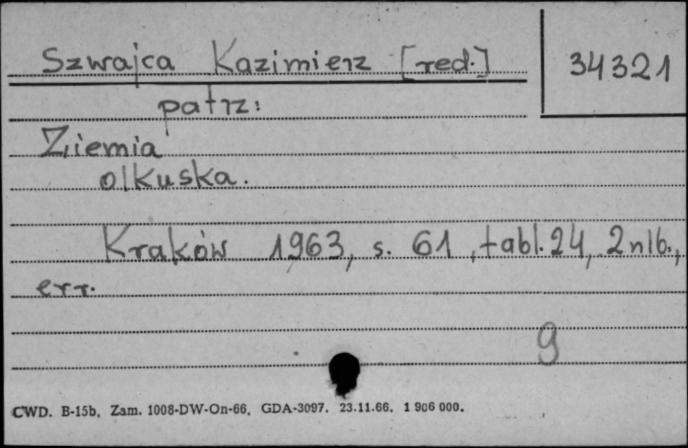 Szwajca Kazimierz [red.]
34321
patrz:
Ziemia
olkuska.
Kraków 1963, s. 61, tabl. 24, 2 nlb.,
err.
9
CWD. B-15b, Zam. 1008-DW-On-66, GDA-3097. 23.11.66. 1 906 000.